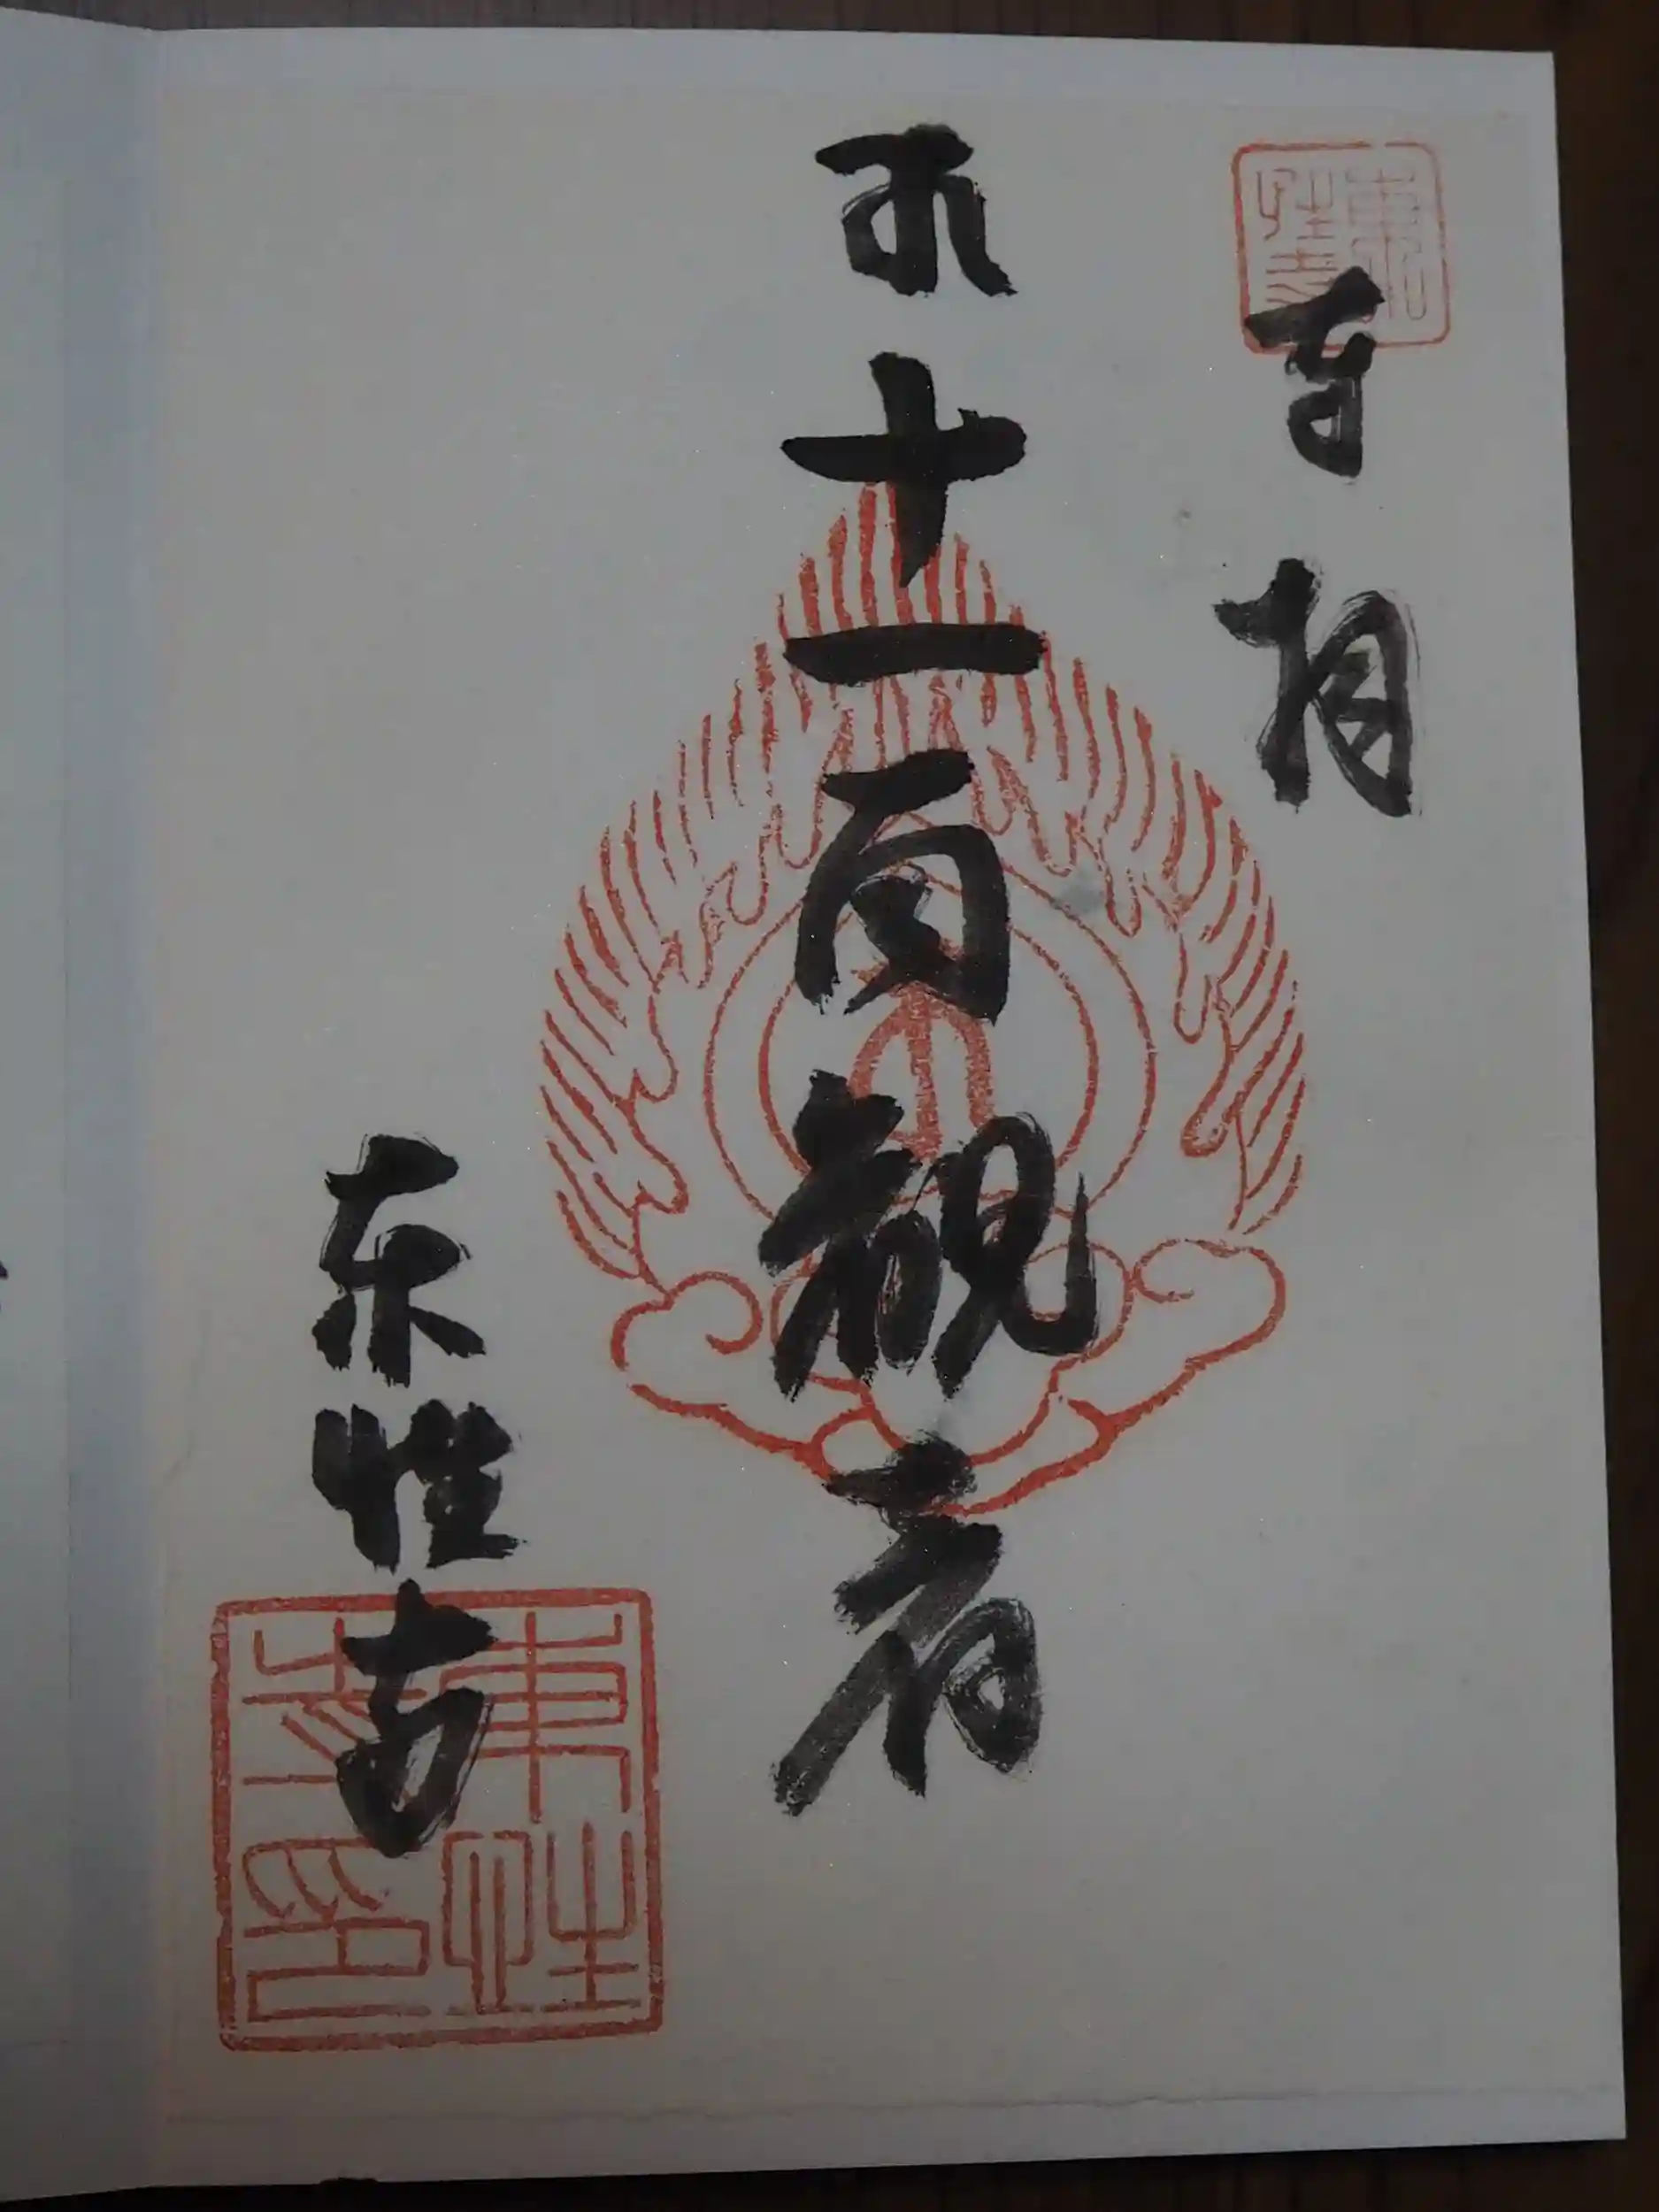 東性寺
奉拝
十一面観音
東性寺
東性寺印